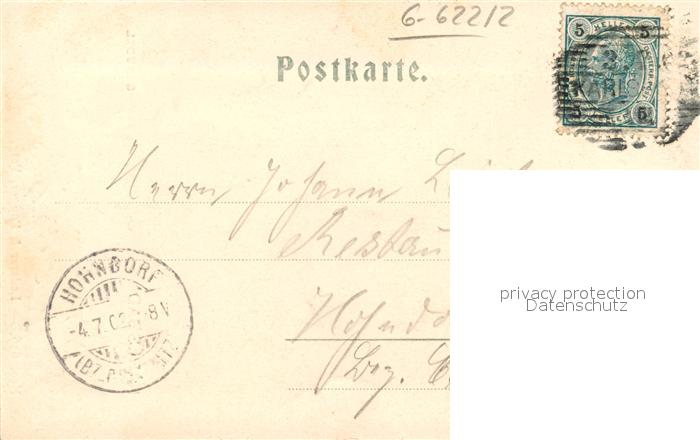 6-622/2
Postkarte.
5 5
KARLS
5 5
Herrn Johann
Restau
Hohndo
Bez. C
HOHNDORF
-4.7.02. 8V
(BZ.
privacy protection
Datenschutz